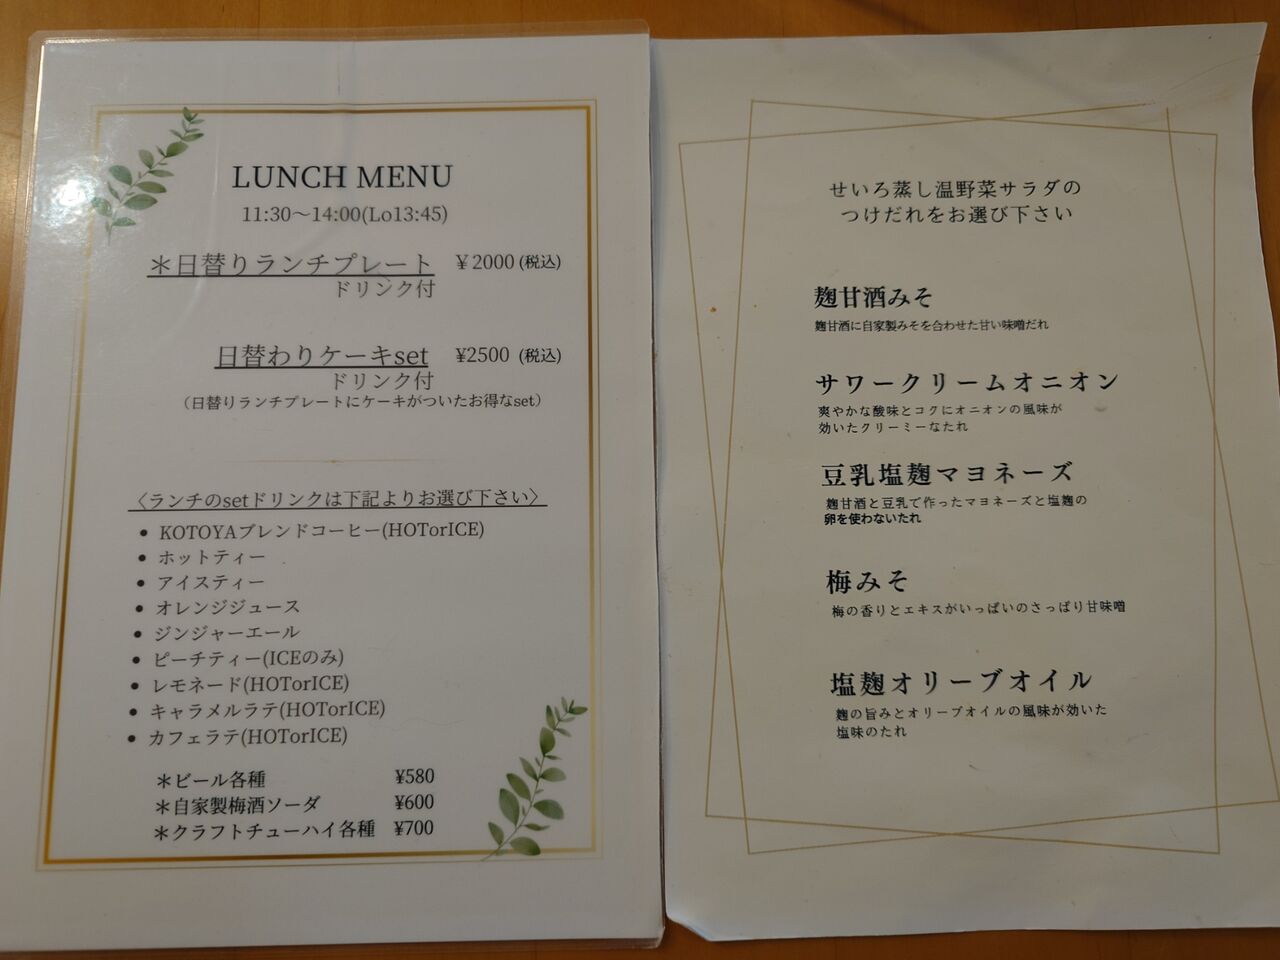 LUNCH MENU
11:30〜14:00(Lo13:45)
＊日替りランチプレート ¥2000(税込)
ドリンク付
日替わりケーキset ¥2500 (税込)
ドリンク付
（日替りランチプレートにケーキがついたお得なset）
〈ランチのsetドリンクは下記よりお選び下さい〉
• KOTOYAブレンドコーヒー(HOTorICE)
• ホットティー
• アイスティー
• オレンジジュース
• ジンジャーエール
• ピーチティー(ICEのみ)
• レモネード(HOTorICE)
• キャラメルラテ(HOTorICE)
• カフェラテ(HOTorICE)
＊ビール各種 ¥580
＊自家製梅酒ソーダ ¥600
＊クラフトチューハイ各種 ¥700
せいろ蒸し温野菜サラダの
つけだれをお選び下さい
麹甘酒みそ
麹甘酒に自家製みそを合わせた甘い味噌だれ
サワークリームオニオン
爽やかな酸味とコクにオニオンの風味が
効いたクリーミーなたれ
豆乳塩麹マヨネーズ
麹甘酒と豆乳で作ったマヨネーズと塩麹の
卵を使わないたれ
梅みそ
梅の香りとエキスがいっぱいのさっぱり甘味噌
塩麹オリーブオイル
麹の旨みとオリーブオイルの風味が効いた
塩味のたれ